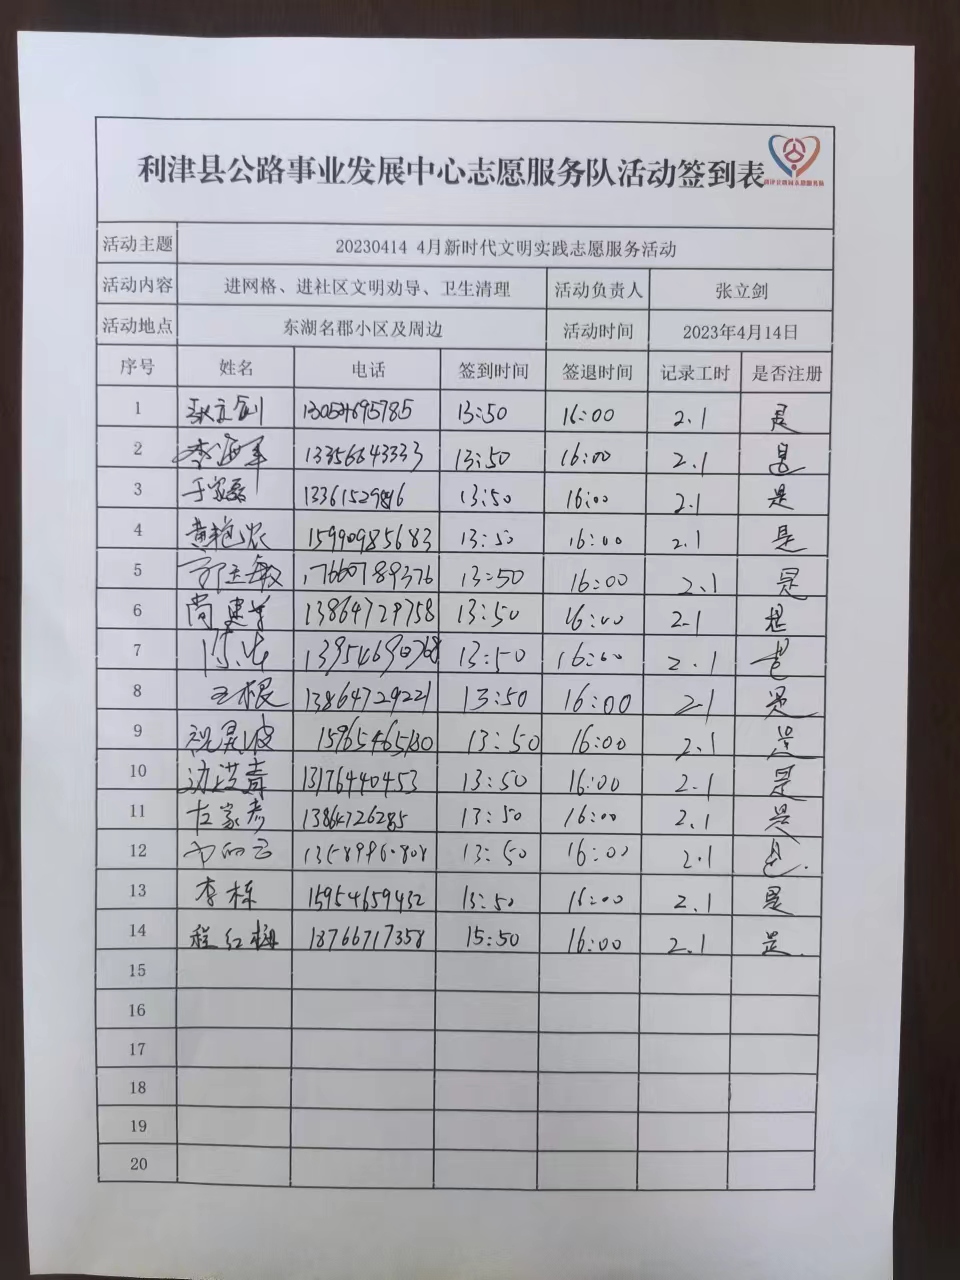 利津县公路事业发展中心志愿服务队活动签到表
活动主题 20230414 4月新时代文明实践志愿服务活动
活动内容 进网格、进社区文明劝导、卫生清理 活动负责人 张立剑
活动地点 东湖名郡小区及周边 活动时间 2023年4月14日
序号 姓名 电话 签到时间 签退时间 记录工时 是否注册
1 张立剑 13054695785 13:50 16:00 2.1 是
2 李海军 13356643333 13:50 16:00 2.1 是
3 13:50 16:00 2.1 是
4 15990985683 13:50 16:00 2.1 是
5 17660789376 13:50 16:00 2.1 是
6 尚建军 13864729758 13:50 16:00 2.1 是
7 13:50 16:00 2.1 是
8 王根 13864729221 13:50 16:00 2.1 是
9 祝晃波 13:50 16:00 2.1 是
10 边洪青 13176440453 13:50 16:00 2.1 是
11 左家彦 13864726285 13:50 16:00 2.1 是
12 13:50 16:00 2.1 是
13 李栋 15954659432 13:50 16:00 2.1 是
14 程红梅 18766717358 15:50 16:00 2.1 是
15
16
17
18
19
20